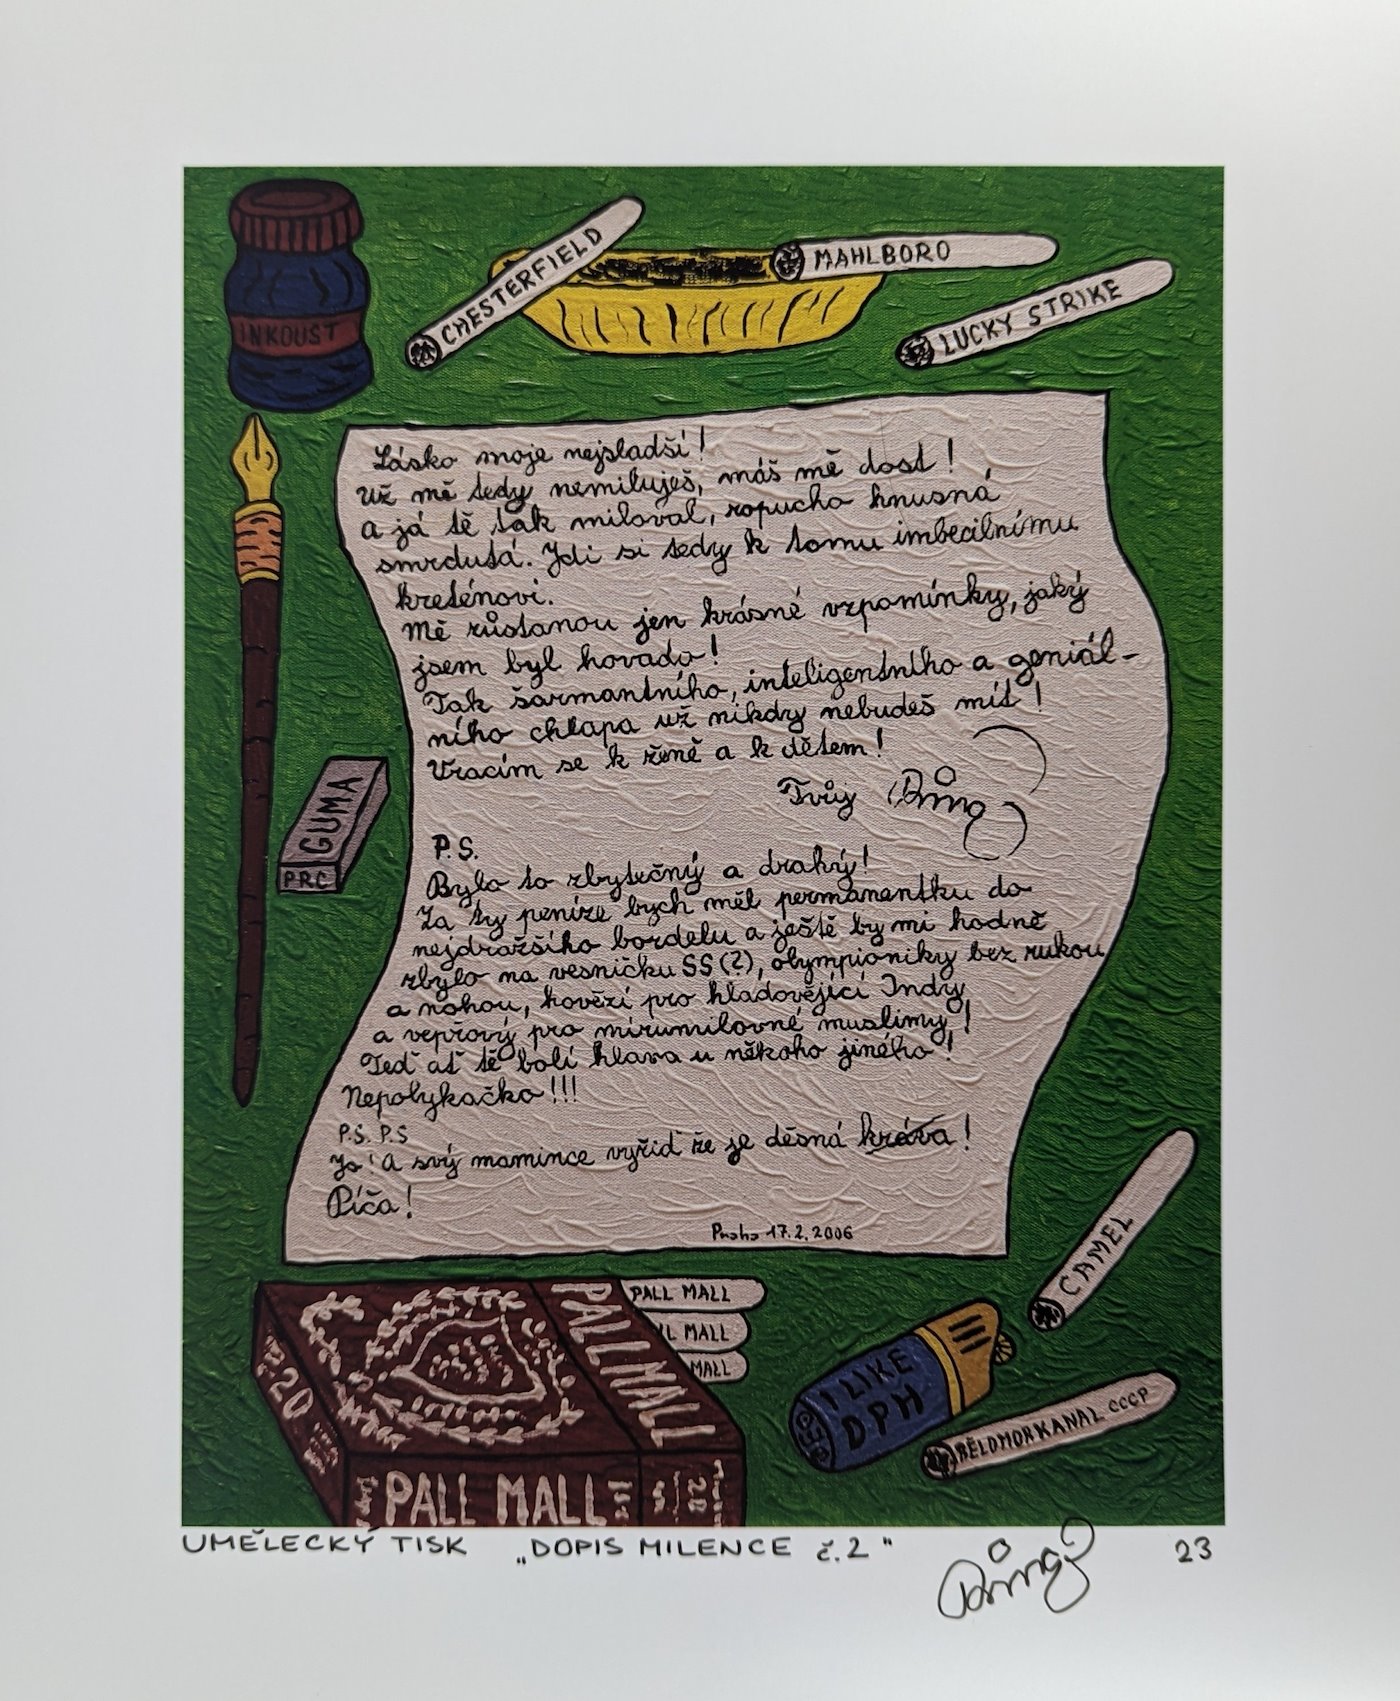 INKOUST
CHESTERFIELD
MAHLBORO
LUCKY STRIKE
Lásko moje nejsladší!
Už mě tedy nemiluješ, máš mě dost!
A já tě tak miloval, ropucho hnusná
smrdutá. Jdi si tedy k tomu imbecilnímu
kreténovi.
Mě zůstanou jen krásné vzpomínky, jaký
jsem byl hovado!
Tak šarmantního, inteligentního a geniál-
ního chlapa už nikdy nebudeš mít!
Vracím se k ženě a k dětem!
Tvůj
GUMA
PRC
P.S.
Bylo to zbytečný a drahý!
Za ty peníze bych měl permanentku do
nejdražšího bordelu a ještě by mi hodně
zbylo na vesničku SS (?), olympioniky bez rukou
a nohou, hovězí pro hladovějící Indy
a vepřový pro mírumilovné muslimy!
Teď ať tě bolí hlava u někoho jiného!
Nepolykačko!!!
P.S. P.S
Jo! A svý mamince vyřiď že je děsná kráva!
Píča!
Praha 17.2.2006
CAMEL
PALL MALL
LL MALL
MALL
PALL MALL
20
PALL MALL
20
I LIKE
DPH
BĚLOMORKANAL CCCP
UMĚLECKÝ TISK „DOPIS MILENCE č.2" 23